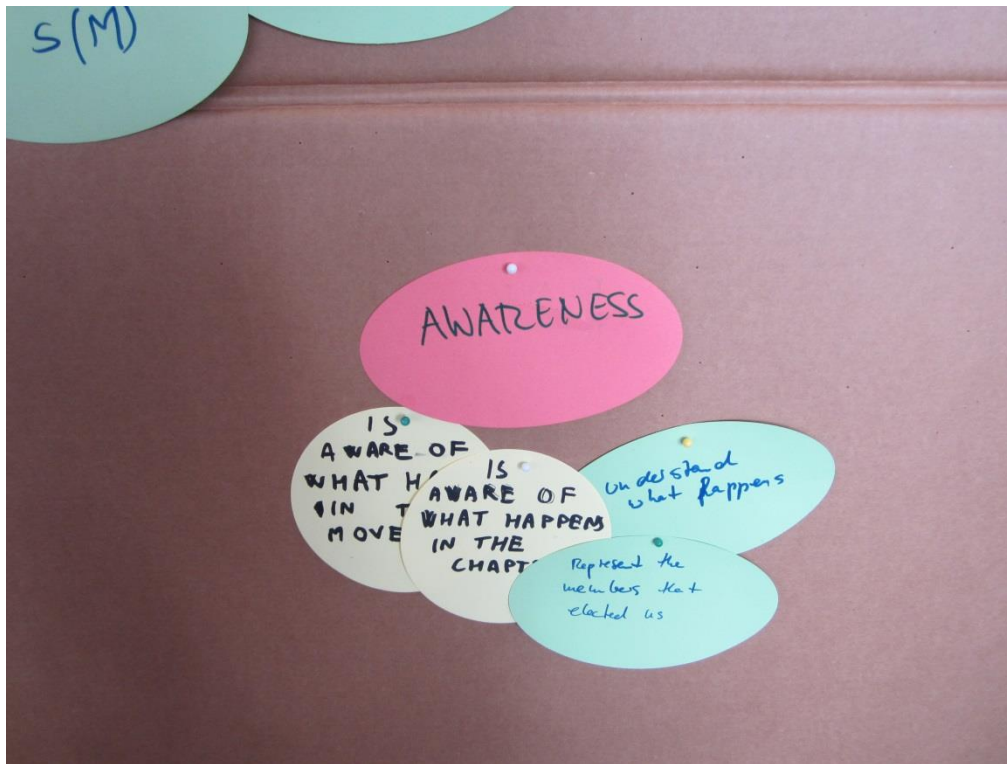 S(M)
AWARENESS
IS
AWARE OF
WHAT
IN
IS
AWARE OF
WHAT HAPPENS
IN THE
understand
what happens
Represent the
members that
elected us